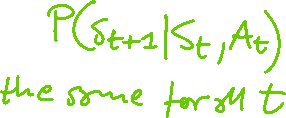 P(S_{t+1}|S_t, A_t)
the same for all t